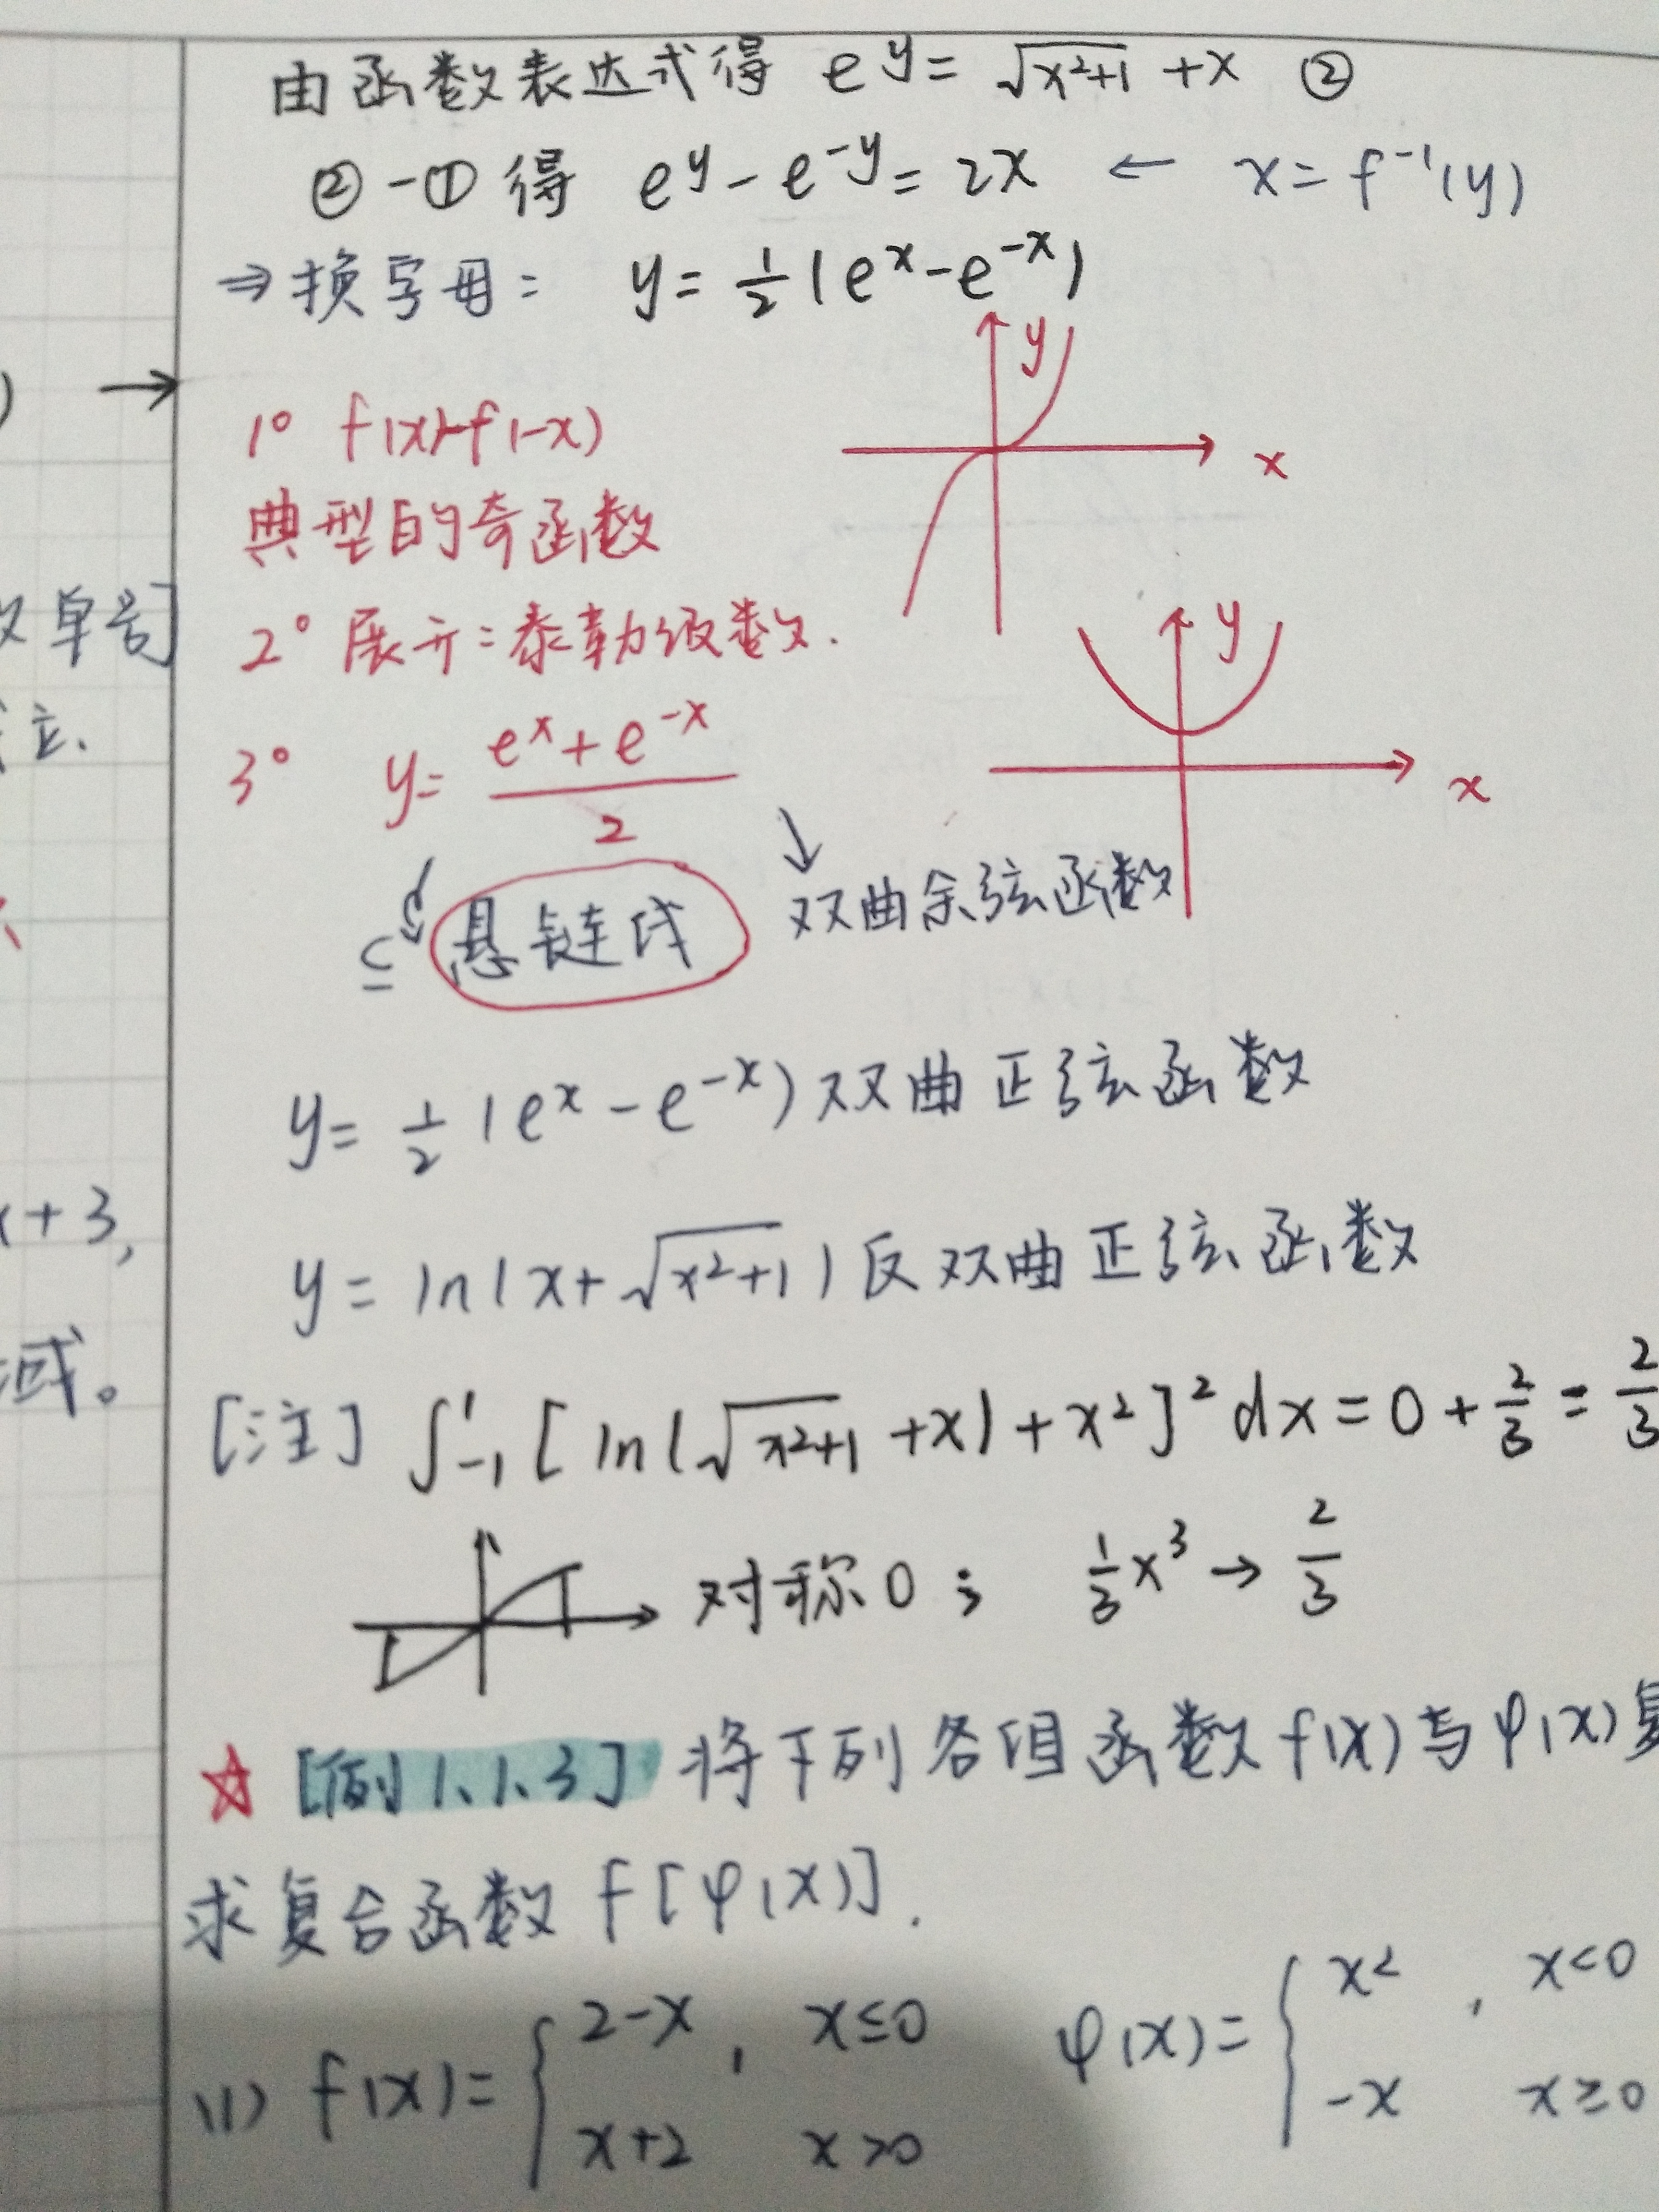 由函数表达式得 e^y = √(x²+1) + x ②
② - ① 得 e^y - e^-y = 2x ← x = f⁻¹(y)
⇒ 换字母: y = 1/2 (e^x - e^-x)
y
x
→
1° f(x)-f(-x)
典型的奇函数
单
2° 展开:泰勒级数.
y
立.
3° y = (e^x + e^-x)/2
x
悬链线
双曲余弦函数
y = 1/2 (e^x - e^-x) 双曲正弦函数
x+3,
y = ln(x+√(x²+1)) 反双曲正弦函数
域。
[注] ∫₋₁¹ [ln(√(x²+1) + x) + x²]² dx = 0 + 2/3 = 2/3
对称0; 1/3 x³ → 2/3
☆ [例1.1.3] 将下列各组函数 f(x) 与 φ(x) 复
求复合函数 f[φ(x)].
(1) f(x) = { 2-x, x≤0 φ(x) = { x², x<0
x+2 x>0 -x x≥0